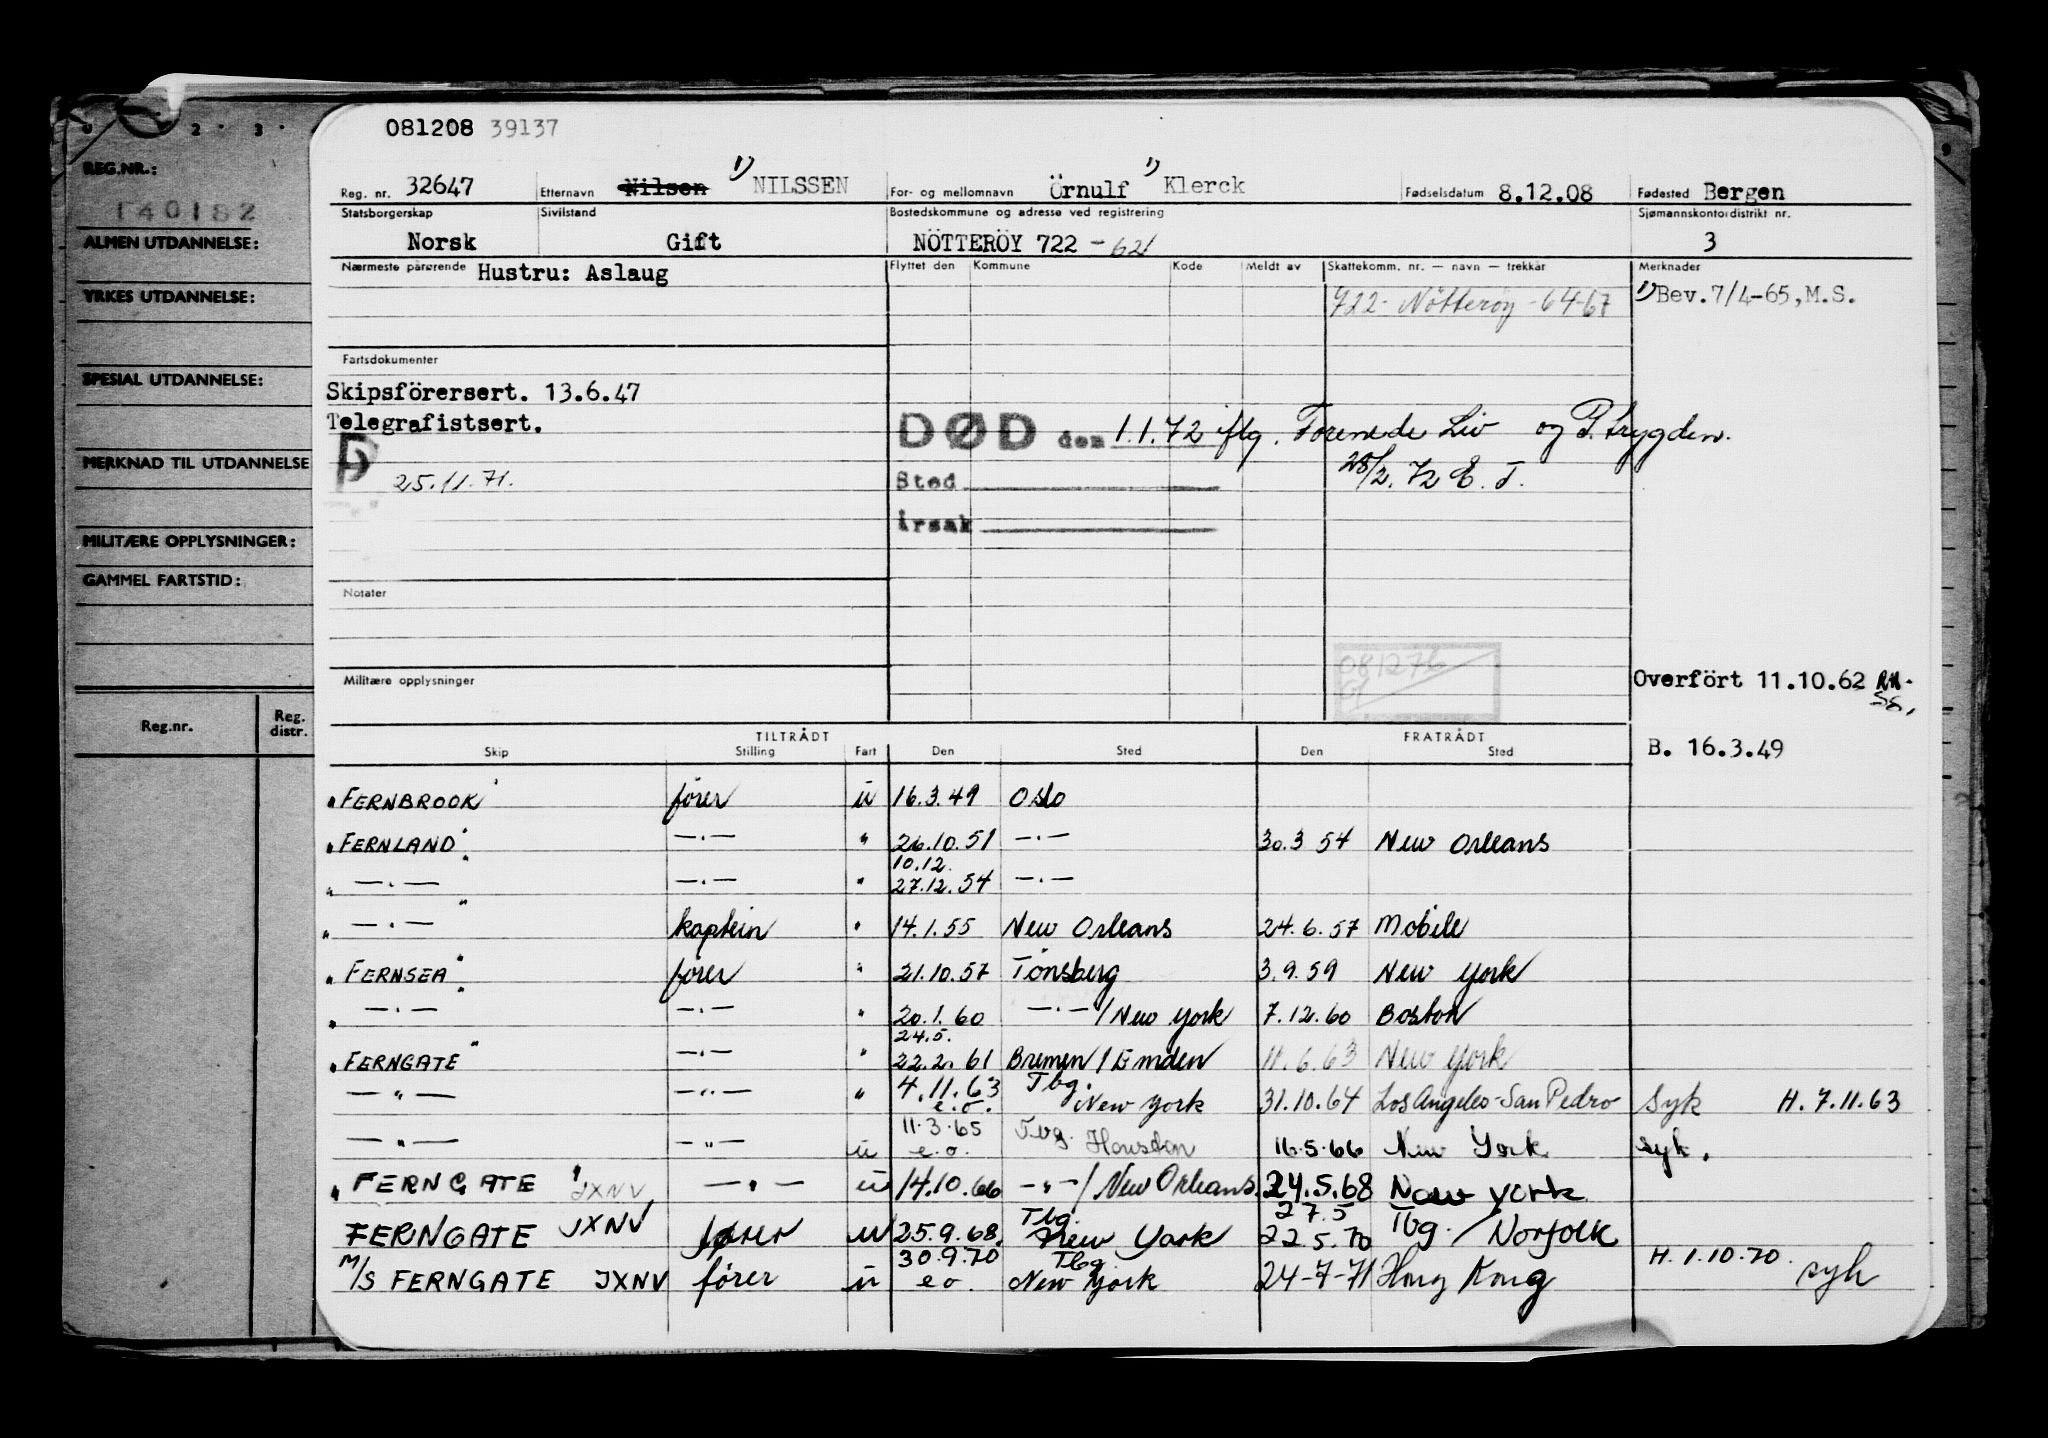 081208 39137
REG.NR.:
140182
ALMEN UTDANNELSE:
YRKES UTDANNELSE:
SPESIAL UTDANNELSE:
MERKNAD TIL UTDANNELSE
MILITÆRE OPPLYSNINGER:
GAMMEL FARTSTID:
Reg.nr. Reg. distr.
Reg. nr. 32647 Etternavn Nilsen 1) NILSSEN For- og mellomnavn Örnulf 1) Klerck Fødselsdatum 8.12.08 Fødested Bergen
Statsborgerskap Sivilstand Bostedskommune og adresse ved registrering Sjømannskontordistrikt nr.
Norsk Gift NÖTTERÖY 722 - 62 3
Nærmeste pårørende Hustru: Aslaug Flyttet den Kommune Kode Meldt av Skattekomm. nr. — navn — trekkår Merknader
722- Nötteröy -64-67 1) Bev.7/4-65,M.S.
Fartsdokumenter
Skipsförersert. 13.6.47
Telegrafistsert.
DØD den 1.1.72 iflg. Forenede Liv og P.trygden.
25.11.71.
28/2.72 E.T.
Sted
Årsak
Notater
081276
Militære opplysninger
Overfört 11.10.62
TILTRÅDT FRATRÅDT
Skip Stilling Fart Den Sted Den Sted
B. 16.3.49
"FERNBROOK" fører u 16.3.49 Oslo
"FERNLAND" —.— " 26.10.51 —.— 30.3 54 New Orleans
10.12.
" —.— " —.— " 27.12.54 —.—
" —.— " kaptein " 14.1.55 New Orleans 24.6.57 Mobile
"FERNSEA" fører " 21.10.57 Tönsberg 3.9.59 New York
" —.— " —.— " 20.1.60 —.—/New York 7.12.60 Boston
24.5.
"FERNGATE" —.— " 22.2.61 Bremen/Emden 11.6.63 New York
—"— —"— " 4.11.63 e.o. Tbg. New York 31.10.64 Los Angeles-San Pedro Syk H. 7.11.63
—"— —"— u 11.3.65 e.o. Tbg. Houston 16.5.66 New York syk.
"FERNGATE" JXNV —"— u 14.10.66 —"—/New Orleans. 24.5.68 New York
FERNGATE JXNV fører u 25.9.68. Tbg. New York 27.5 22.5.70 Tbg./Norfolk
M/S FERNGATE JXNV fører u 30.9.70 e.o. Tbg New York 24-7-71 Hong Kong H. 1.10.70. syk